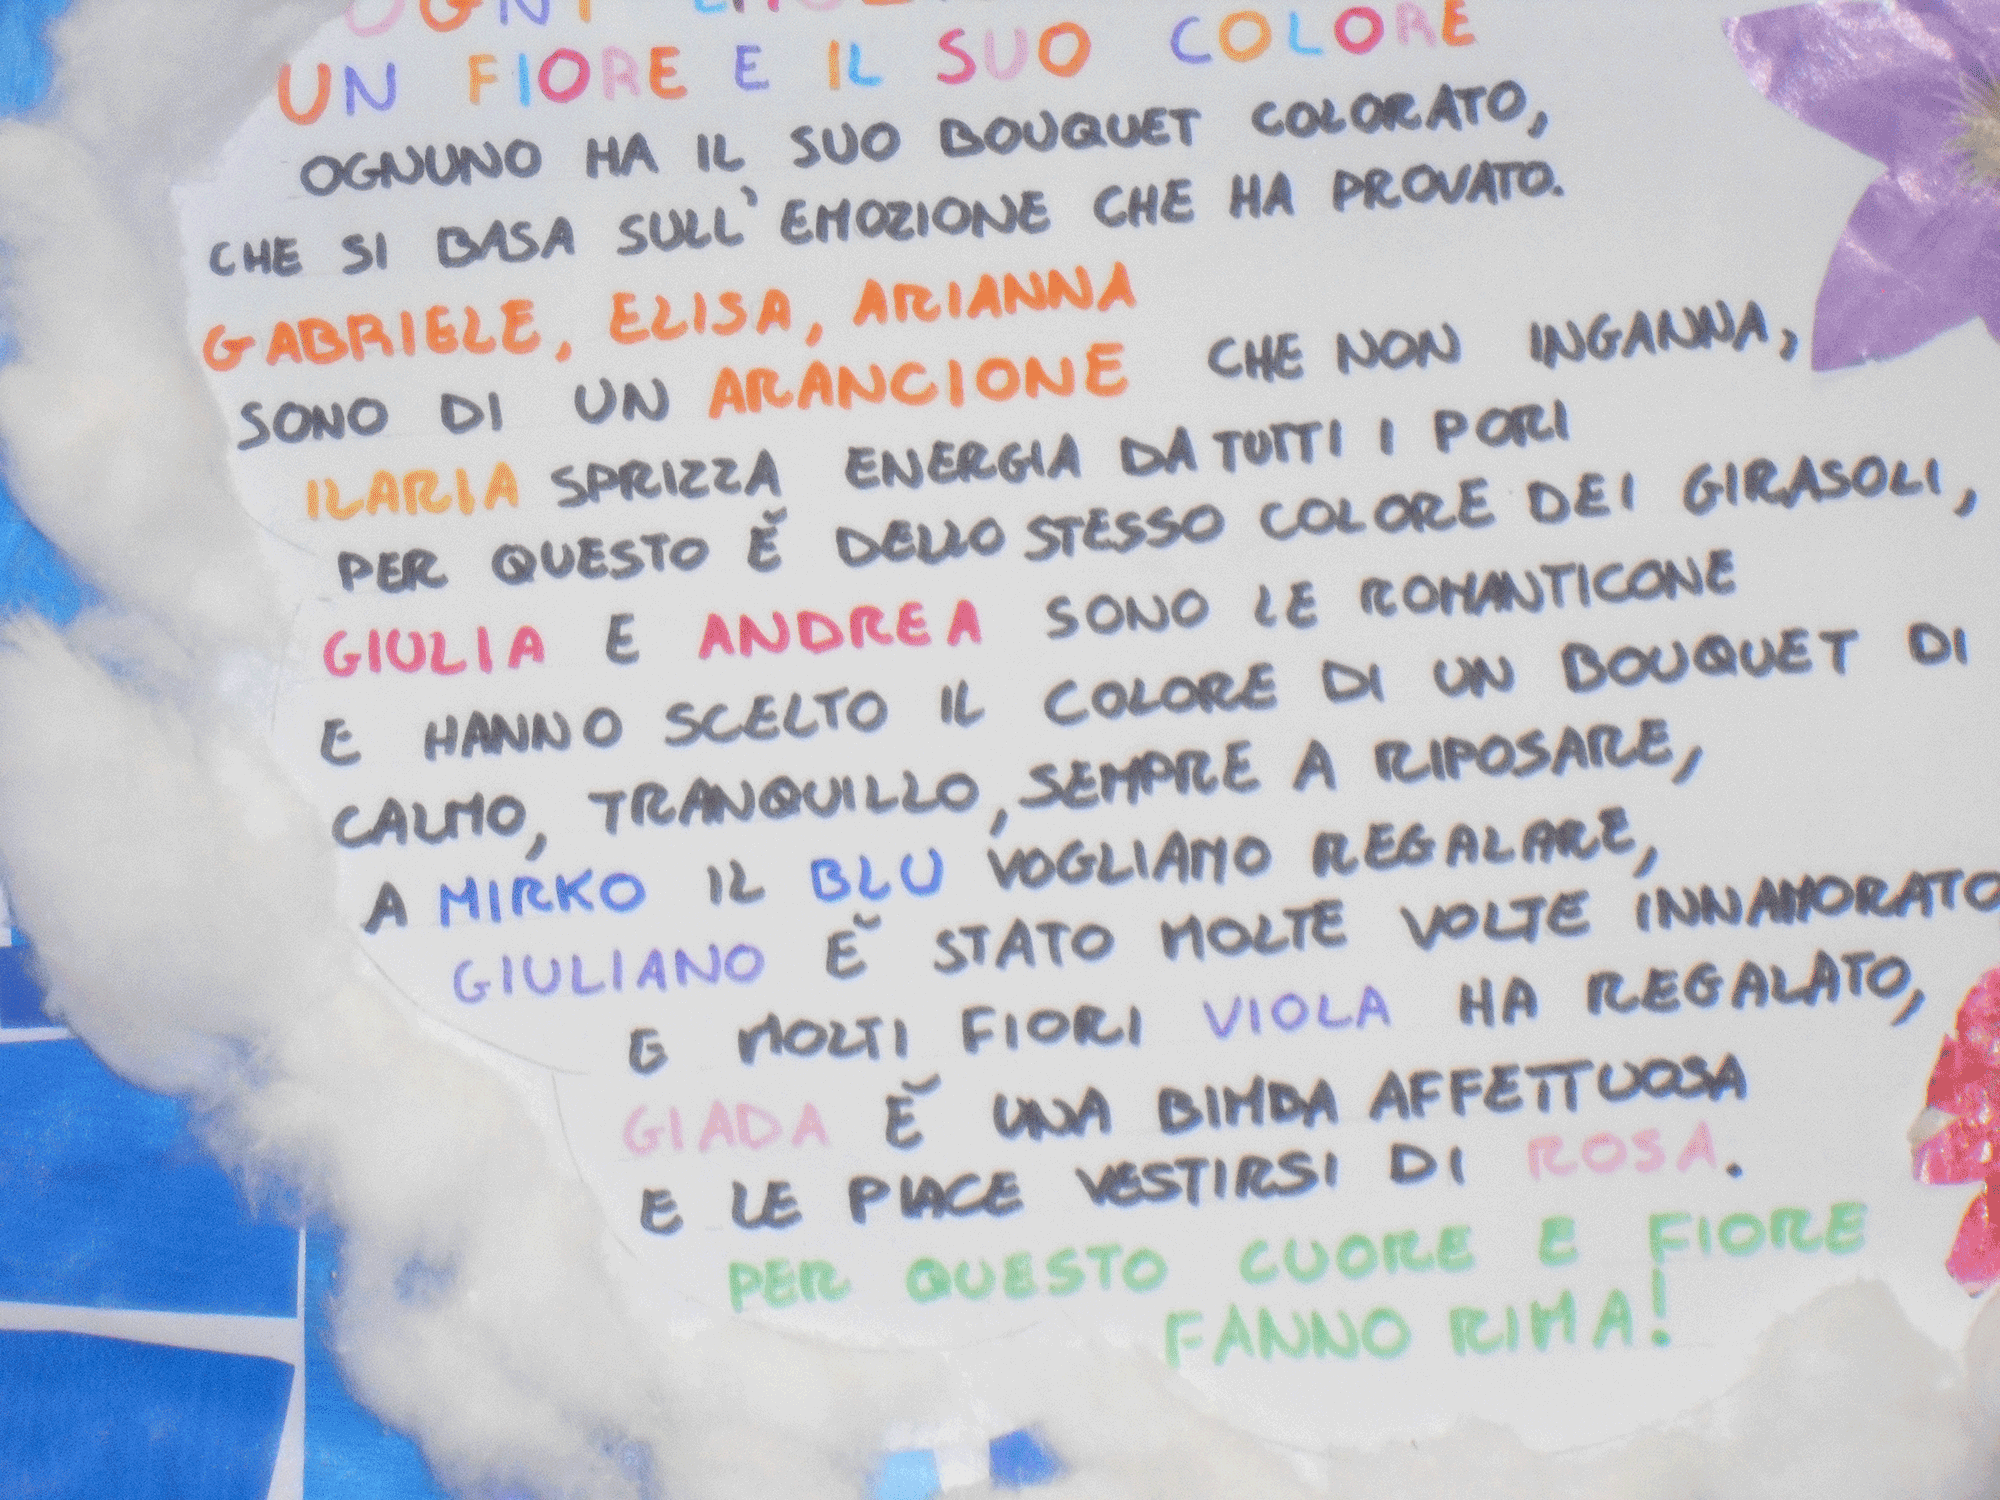 OGNI
UN FIORE E IL SUO COLORE
OGNUNO HA IL SUO BOUQUET COLORATO,
CHE SI BASA SULL' EMOZIONE CHE HA PROVATO.
GABRIELE, ELISA, ARIANNA
SONO DI UN ARANCIONE CHE NON INGANNA,
ILARIA SPRIZZA ENERGIA DA TUTTI I PORI
PER QUESTO È DELLO STESSO COLORE DEI GIRASOLI,
GIULIA E ANDREA SONO LE ROMANTICONE
E HANNO SCELTO IL COLORE DI UN BOUQUET DI
CALMO, TRANQUILLO, SEMPRE A RIPOSARE,
A MIRKO IL BLU VOGLIAMO REGALARE,
GIULIANO È STATO MOLTE VOLTE INNAMORATO
E MOLTI FIORI VIOLA HA REGALATO,
GIADA È UNA BIMBA AFFETTUOSA
E LE PIACE VESTIRSI DI ROSA.
PER QUESTO CUORE E FIORE
FANNO RIMA!